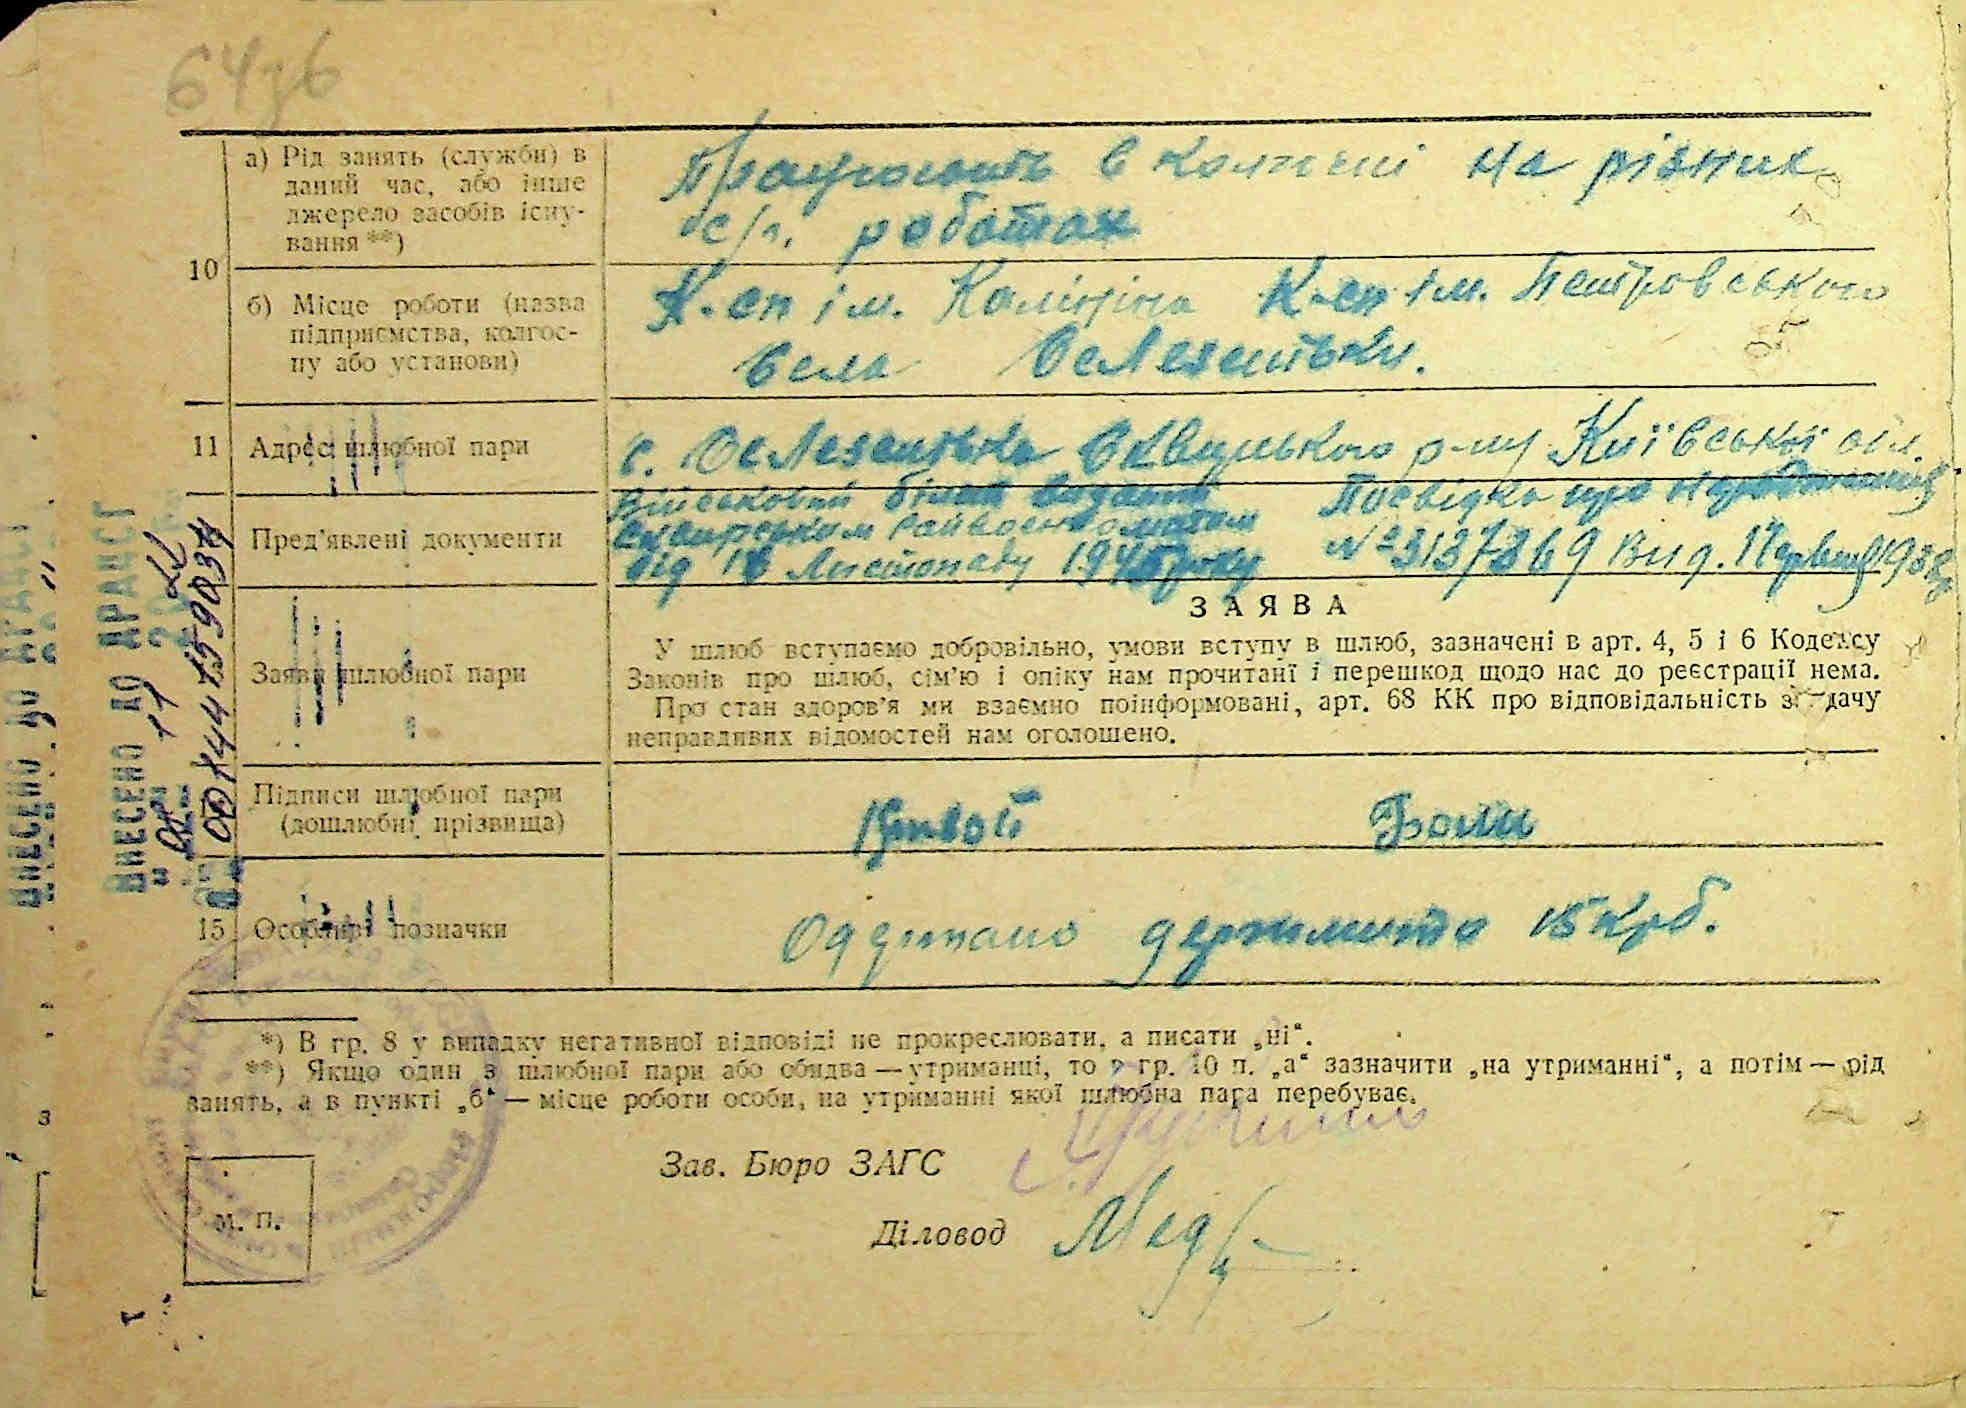 64зв
10
а) Рід занять (служби) в
даний час, або інше
джерело засобів існу-
вання **)
Працюють в колгоспі на різних
с/г. роботах
б) Місце роботи (назва
підприємства, колгос-
пу або установи)
К-сп ім. Калініна К-сп ім. Петровського
села Селезенівки.
11 Адрес шлюбної пари
с. Селезенівка Сквирського р-ну Київської обл.
Пред'явлені документи
Військовий білет виданий
Сквирським Райвоєнкоматом
від 18 Листопаду 1945 року
Посвідка про народження
№ 3137369 вид.
Заява шлюбної пари
ЗАЯВА
У шлюб вступаємо добровільно, умови вступу в шлюб, зазначені в арт. 4, 5 і 6 Кодексу
Законів про шлюб, сім'ю і опіку нам прочитані і перешкод щодо нас до реєстрації нема.
Про стан здоров'я ми взаємно поінформовані, арт. 68 КК про відповідальність за дачу
неправдивих відомостей нам оголошено.
Підписи шлюбної пари
(дошлюбні прізвища)
15 Особливі позначки
Одержано держмито 15 крб.
*) В гр. 8 у випадку негативної відповіді не прокреслювати, а писати „ні“.
**) Якщо один з шлюбної пари або обидва — утриманці, то в гр. 10 п. „а“ зазначити „на утриманні“, а потім — рід
занять, а в пункті „б“ — місце роботи особи, на утриманні якої шлюбна пара перебуває.
Зав. Бюро ЗАГС
Діловод
М. П.
ВНЕСЕНО ДО ДРАЦСГ
00144159034
ВНЕСЕНО ДО